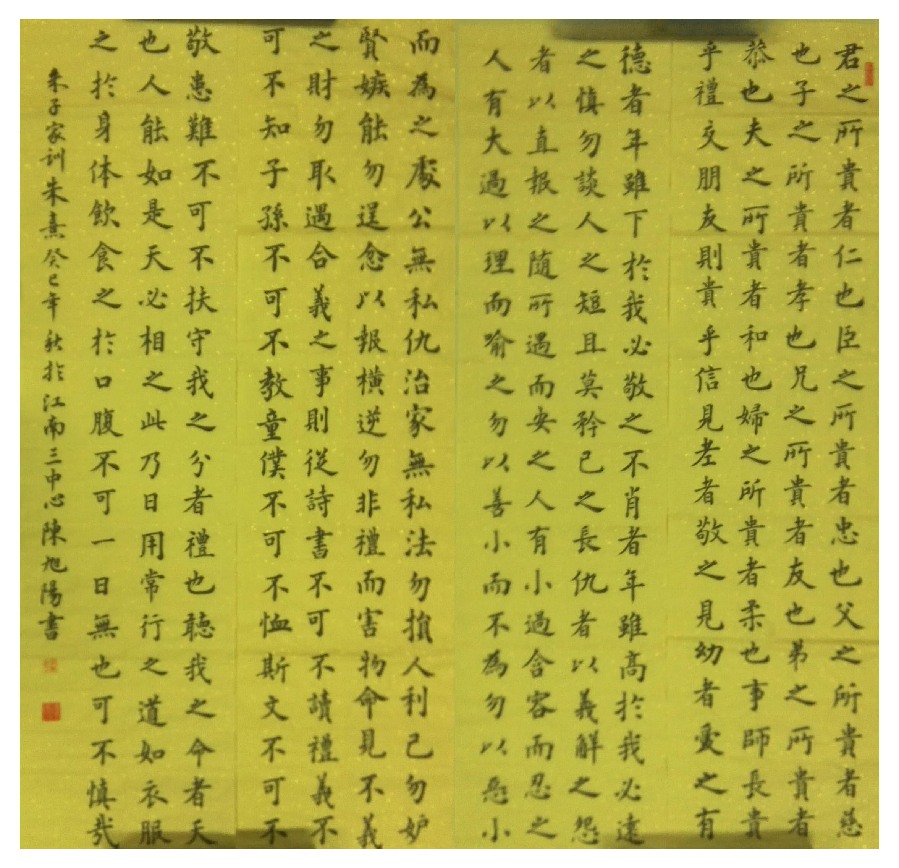 君之所貴者仁也臣之所貴者忠也父之所貴者慈
也子之所貴者孝也兄之所貴者友也弟之所貴者
恭也夫之所貴者和也婦之所貴者柔也事師長貴
乎禮交朋友則貴乎信見老者敬之見幼者愛之有
德者年雖下於我必敬之不肖者年雖高於我必遠
之慎勿談人之短且莫矜己之長仇者以義解之怨
者以直報之随所遇而安之人有小過含容而忍之
人有大過以理而喻之勿以善小而不為勿以惡小
而為之處公無私仇治家無私法勿損人利己勿妒
賢嫉能勿逞忿以報橫逆勿非禮而害物命見不義
之財勿取遇合義之事則從詩書不可不讀禮義不
可不知子孫不可不教童僕不可不恤斯文不可不
敬患難不可不扶守我之分者禮也聽我之命者天
也人能如是天必相之此乃日用常行之道如衣服
之於身体飲食之於口腹不可一日無也可不慎哉
朱子家训朱熹癸巳年秋於江南三中心陳旭陽書